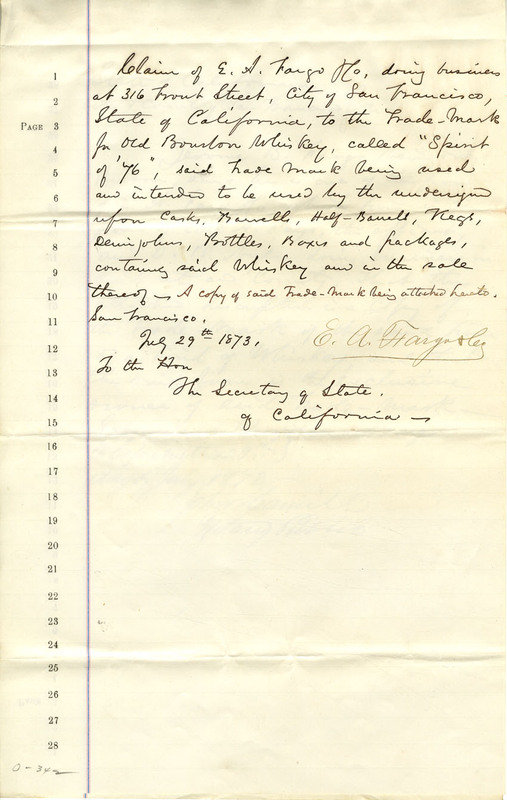 Claim of E. A. Fargo & Co, doing business
1
at 316 Front Street, City of San Francisco,
2
State of California, to the Trade-Mark
PAGE 3
for Old Bourbon Whiskey, called "Spirit
4
of '76", said Trade Mark being used
5
and intended to be used by the undersigned
6
upon Casks, Barrells, Half-Barrells, Kegs,
7
Demijohns, Bottles, Boxes and packages,
8
containing said Whiskey and in the sale
9
thereof — A copy of said Trade-Mark being attached hereto.
10
San Francisco.
11
July 29th 1873.
E. A. Fargo & Co
12
To the Hon
13
The Secretary of State.
14
of California —
15
16
17
18
19
20
21
22
23
24
25
26
27
28
0-342